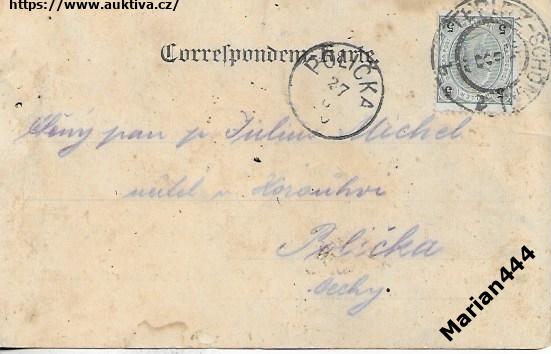 https://www.auktiva.cz/
Correspondenz-Karte.
POLIČKA
27
5
5
5
5
pan p. Julius Michel
učitel v Korouhvi
Polička
Čechy
Marian444